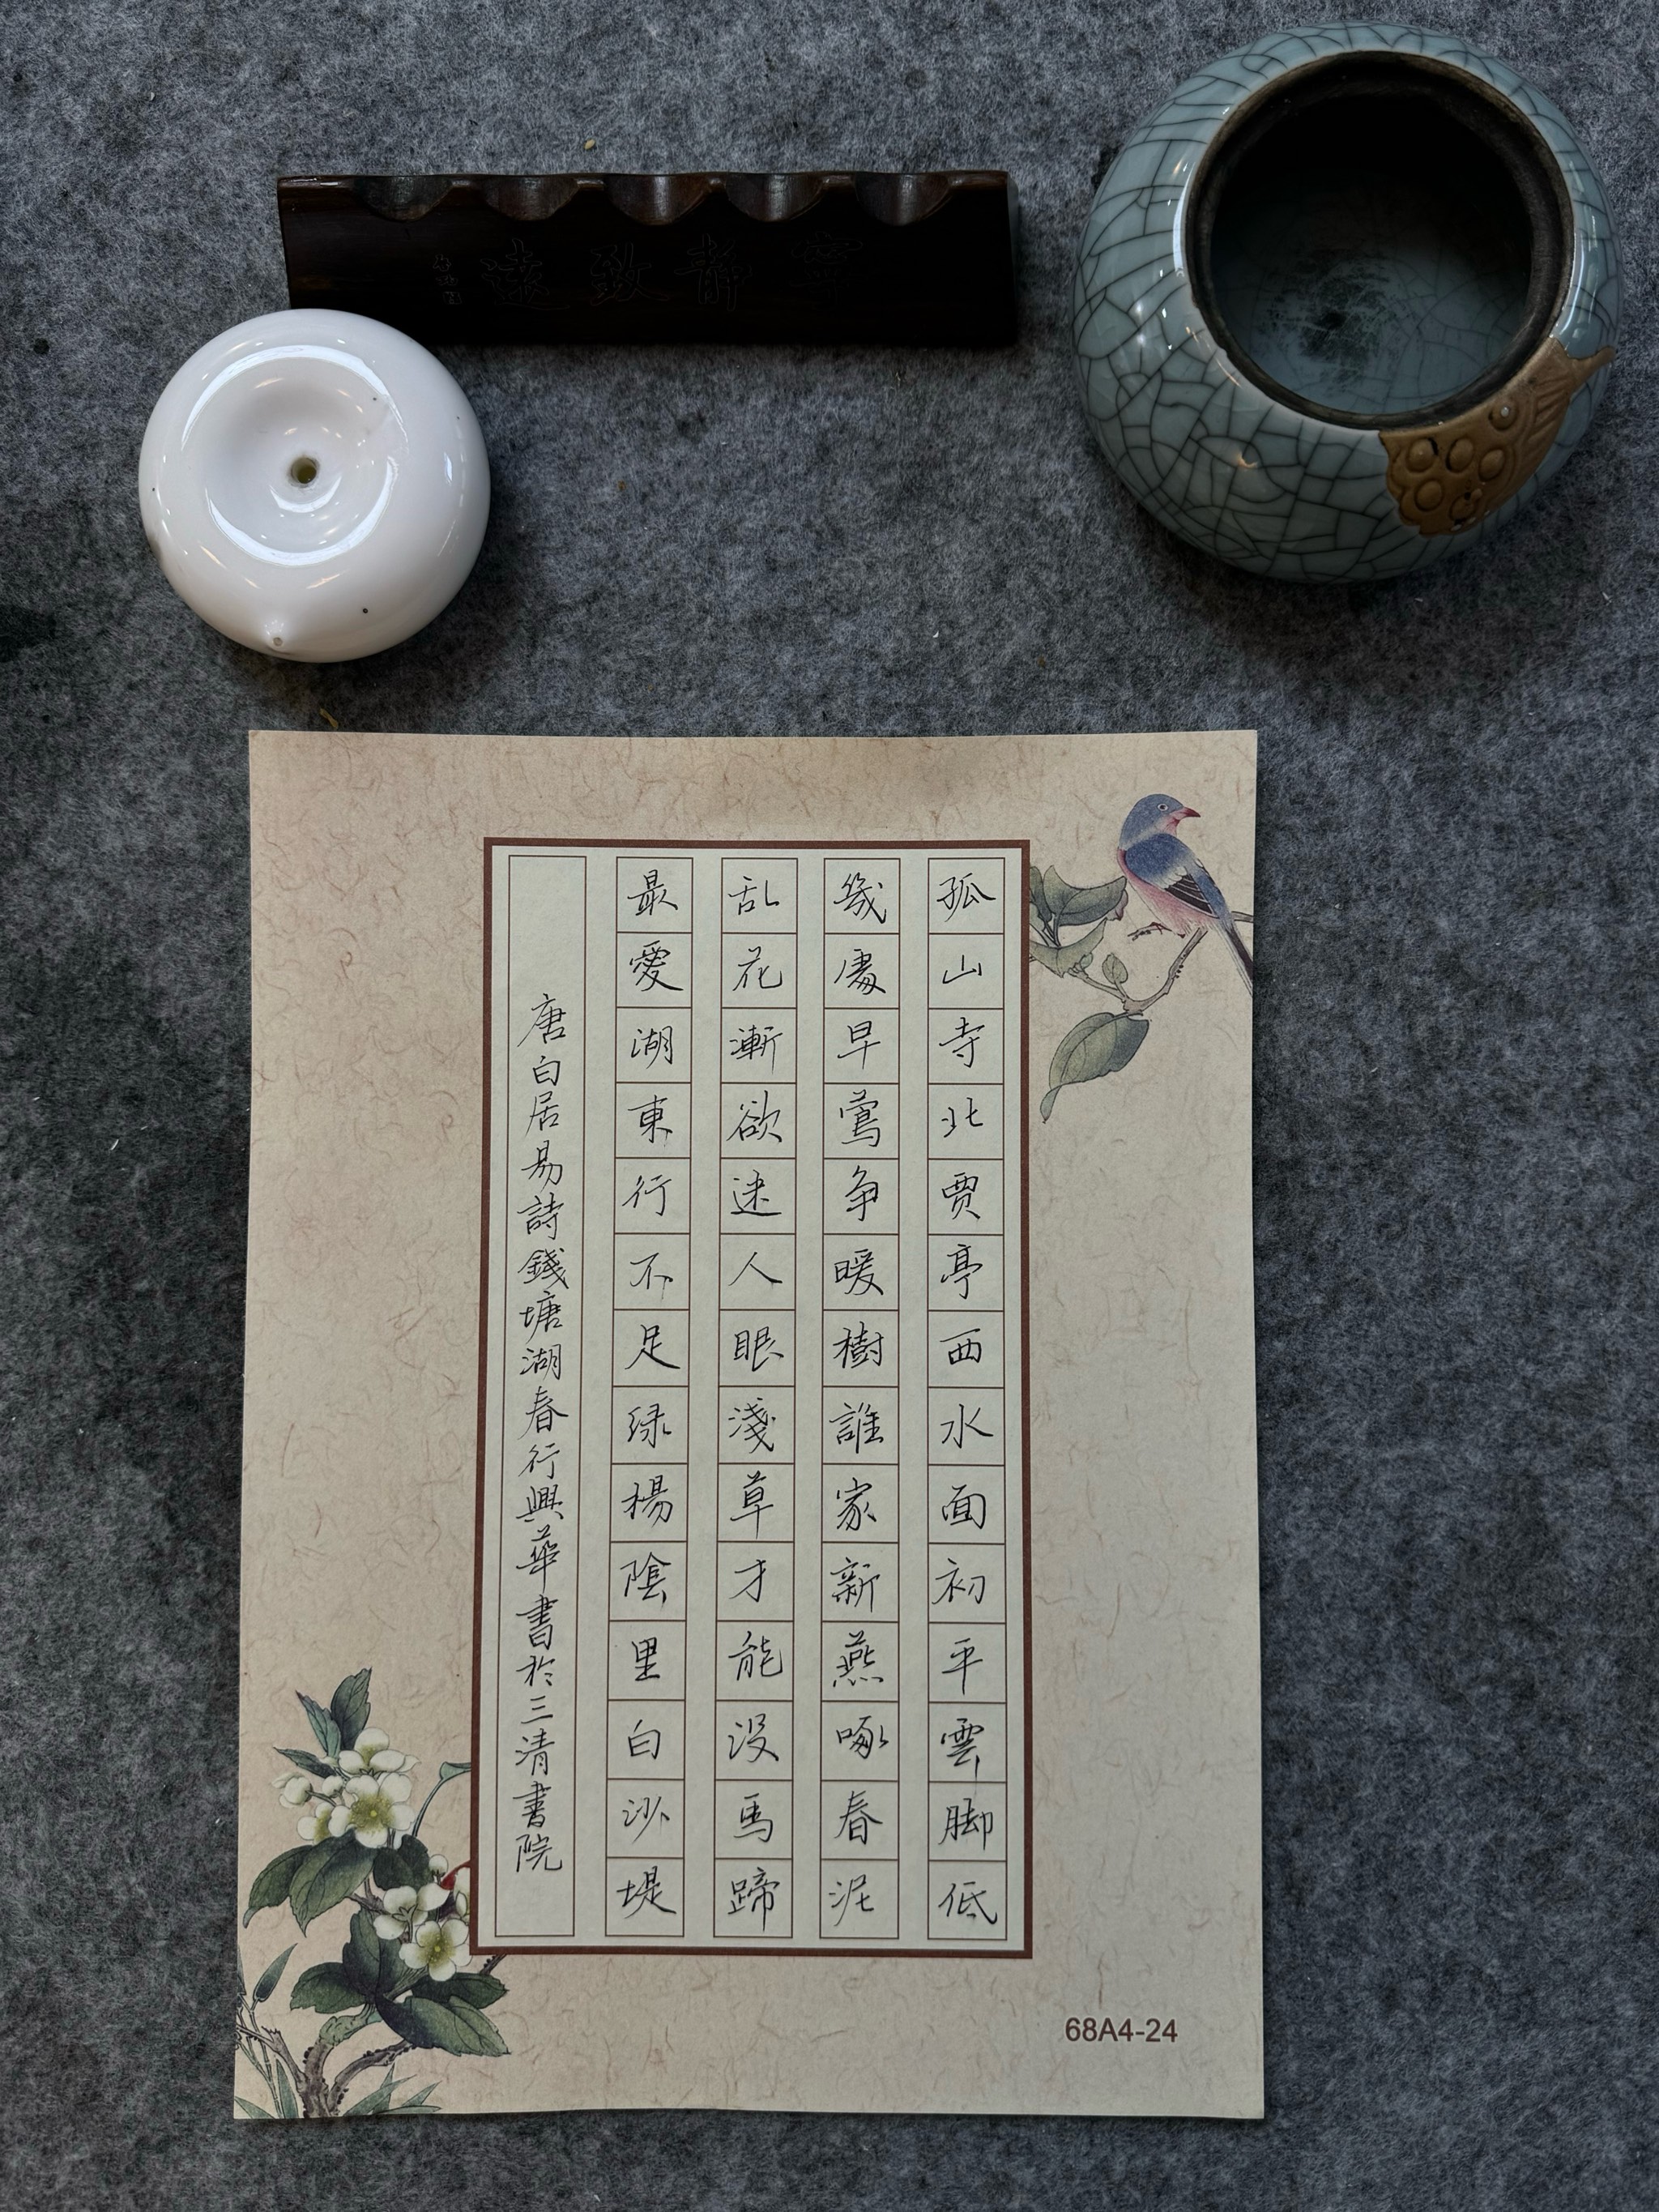 寧靜致遠
孤山寺北贾亭西水面初平雲脚低
幾處早鶯争暖樹誰家新燕啄春泥
乱花漸欲迷人眼淺草才能没馬蹄
最愛湖東行不足绿楊陰里白沙堤
唐白居易詩錢塘湖春行興華書於三清書院
68A4-24